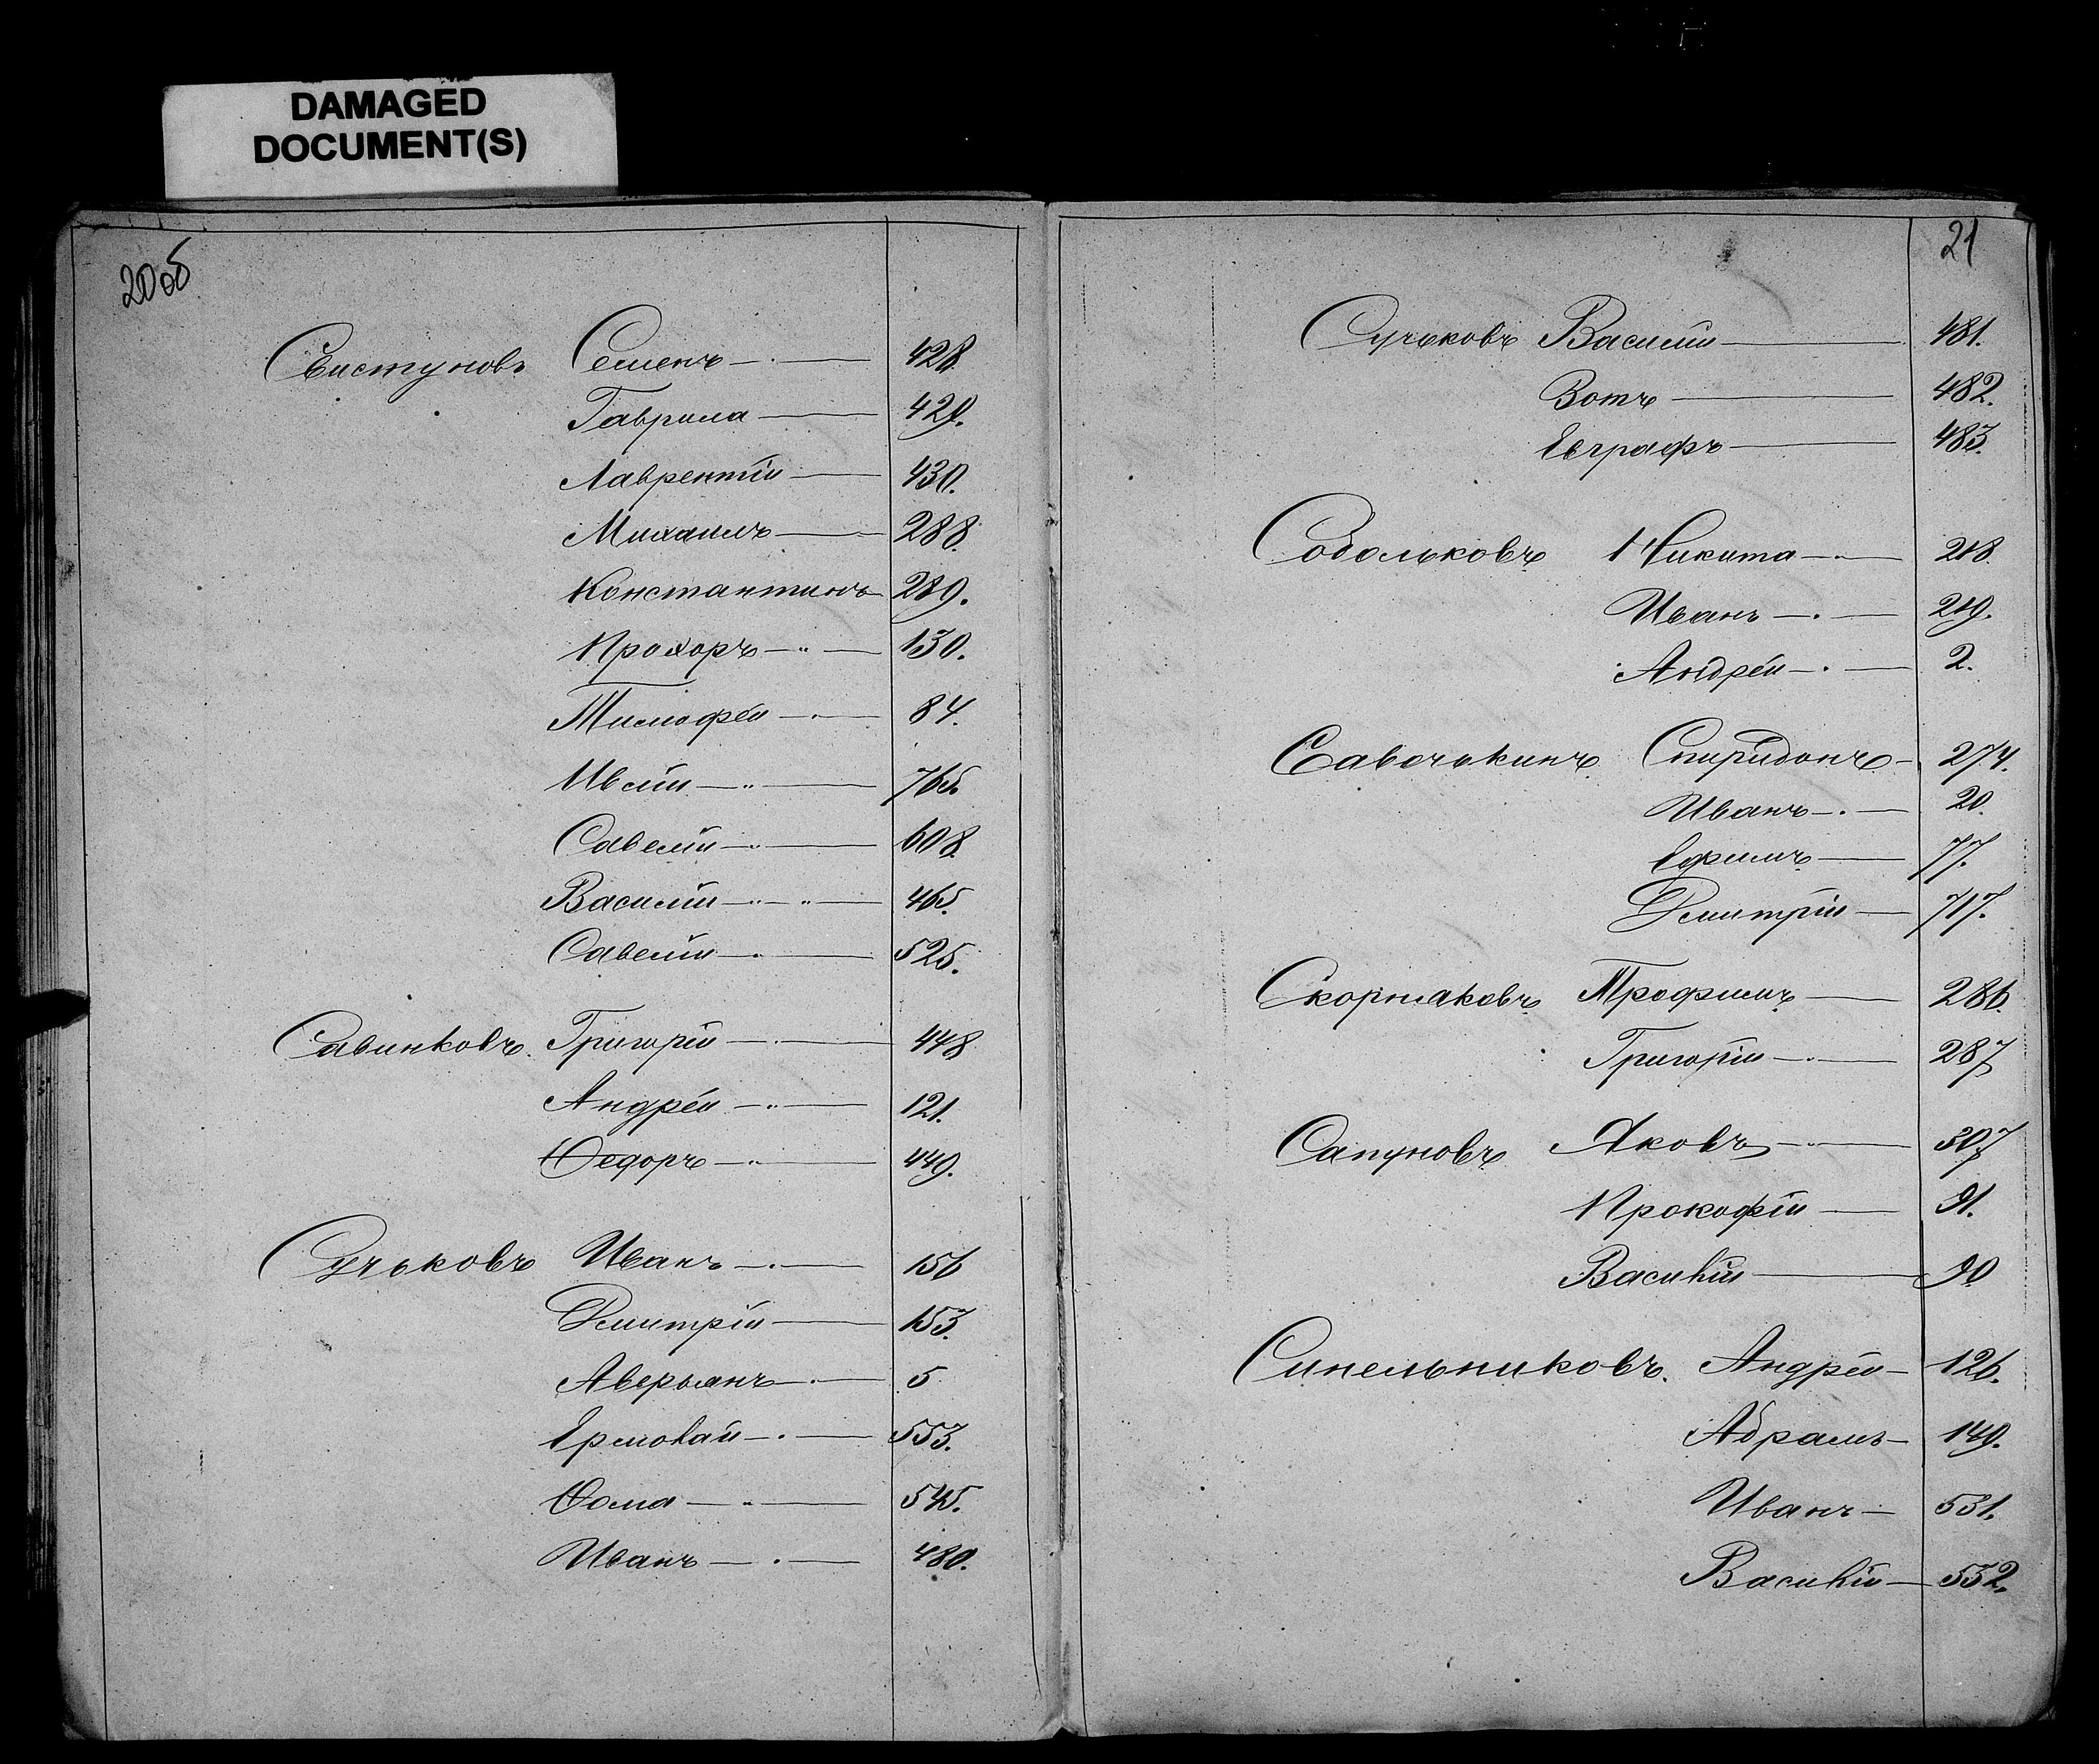 DAMAGED
DOCUMENT(S)
20 об
Свистуновъ Семенъ 428.
Гаврила 429.
Лаврентiй 430.
Михаилъ 288.
Константинъ 289.
Прохоръ 130.
Тимофей 84.
Ивлiй 765.
Савелiй 608.
Василiй 465.
Савелiй 525.
Савинковъ. Григорiй 448
Андрей 121.
Ѳедоръ 449.
Сучьковъ Иванъ 156
Дмитрiй 153.
Аверьянъ 5
Ермолай 553.
Ѳома 545.
Иванъ 480.
21
Сучьковъ Василiй 481.
Вотъ 482.
Евграфъ 483.
Собольковъ Никита 218.
Иванъ 219.
Андрей 2.
Савочькинъ Спиридонъ 274.
Иванъ 20.
Ефимъ 77.
Дмитрiй 717.
Скорняковъ Трофимъ 286.
Григорiй 287
Сапуновъ Яковъ 307
Прокофiй 91.
Василiй 90
Синельниковъ. Андрей 126.
Абрамъ 149.
Иванъ 531.
Василiй 532.